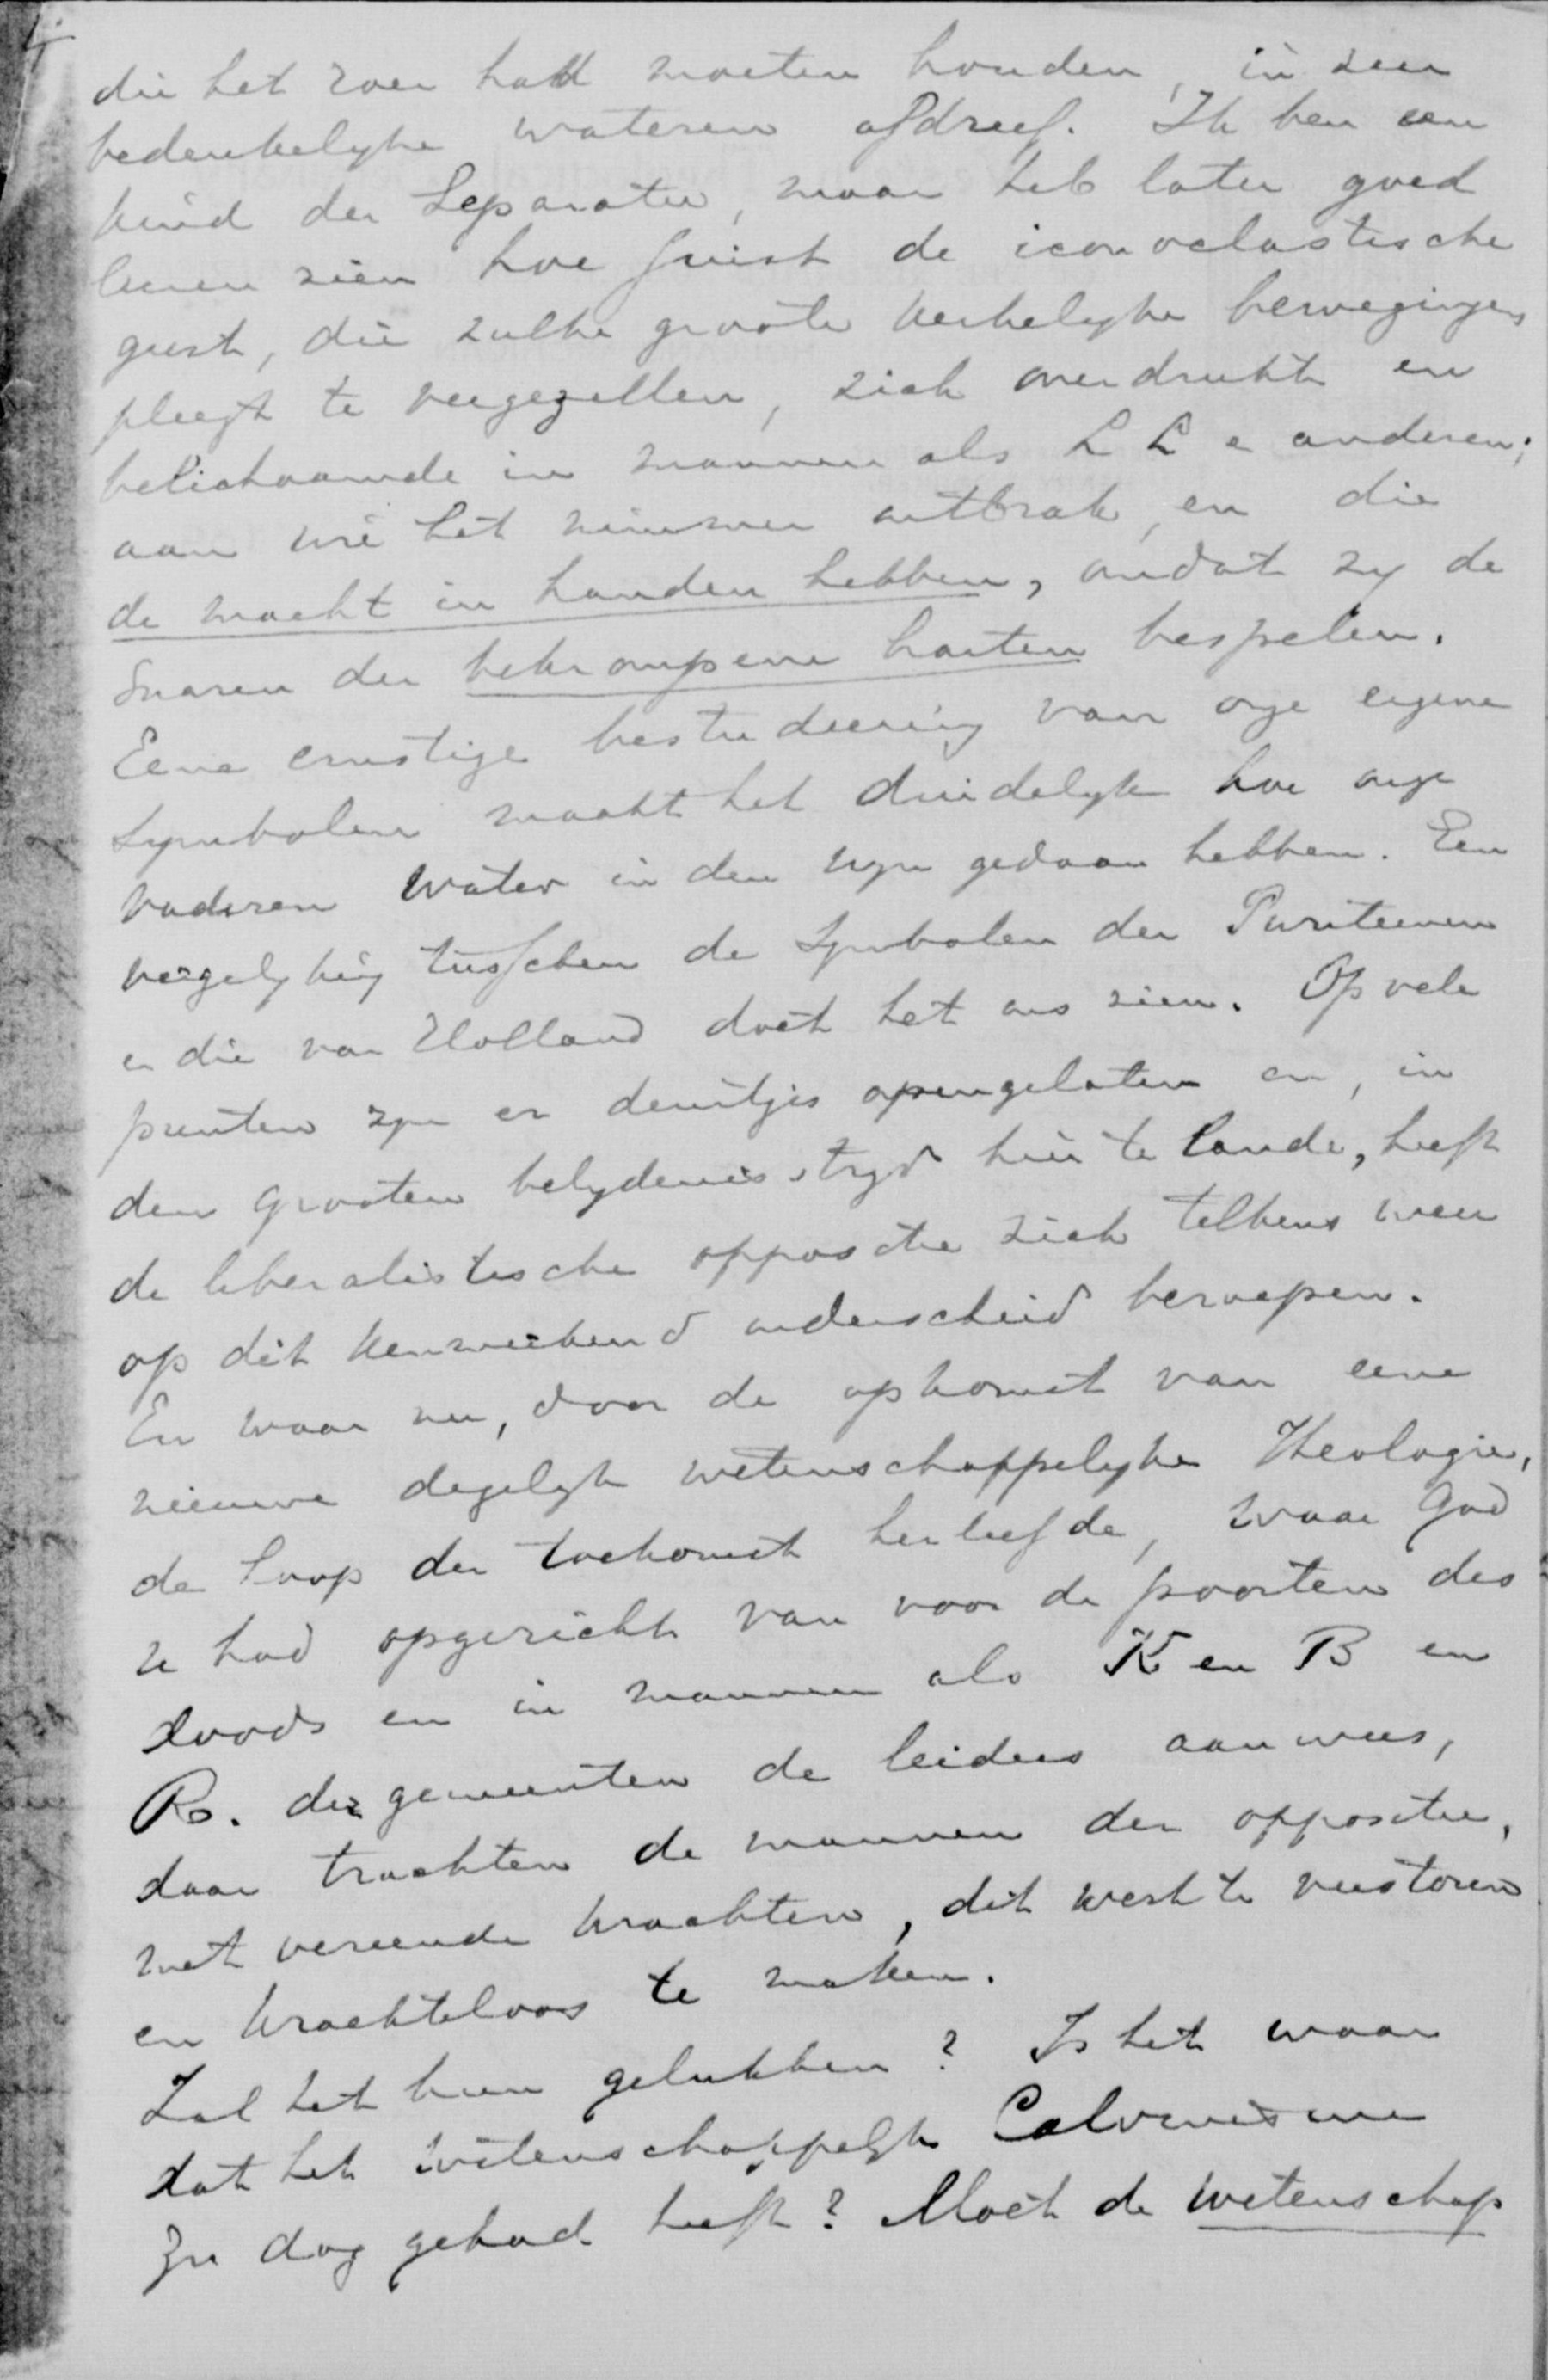 die het roer hadd moeten houden, in zeer
bedenkelyke wateren afdreef. Ik ben een
kind der Separatie, maar heb later goed
leeren zien hoe juist de iconoclastische
geest, die zulke groote kerkelyke bewegingen
pleegt te vergezellen, zich overdrukte en
belichaamde in mannen als L L e anderen;
aan wie het nimmer ontbrak, en die
de macht in handen hebben, omdat zy de
snaren der bekrompene harten bespelen.
Eene ernstige bestudeering van onze eigene
Symbolen maakt het duidelyk hoe onze
vaderen water in den wyn gedaan hebben. Een
vergelyking tusschen de Symbolen der Puriteenen
e die van Holland doet het ons zien. Op vele
punten zyn er deurtjes opengelaten en, in
den grooten belydenisstryd hier te lande, heeft
de liberalistische oppositie zich telkens weer
op dit kenmerkend onderscheid beroepen.
En waar nu, door de opkomst van eene
nieuwe degelyk wetenschappelyke Theologie,
de hoop der toekomst herleefde, waar God
ze had opgericht van voor de poorten des
doods en in mannen als K en B en
R. der gemeenten de leiders aanwees,
daar trachten de mannen der oppositie,
met vereende krachten, dit werk te verstoren
en krachteloos te maken.
Zal het hun gelukken? Is het waar
dat het wetenschappelyk Calvinisme
zyn dag gehad heeft? Moet de wetenschap